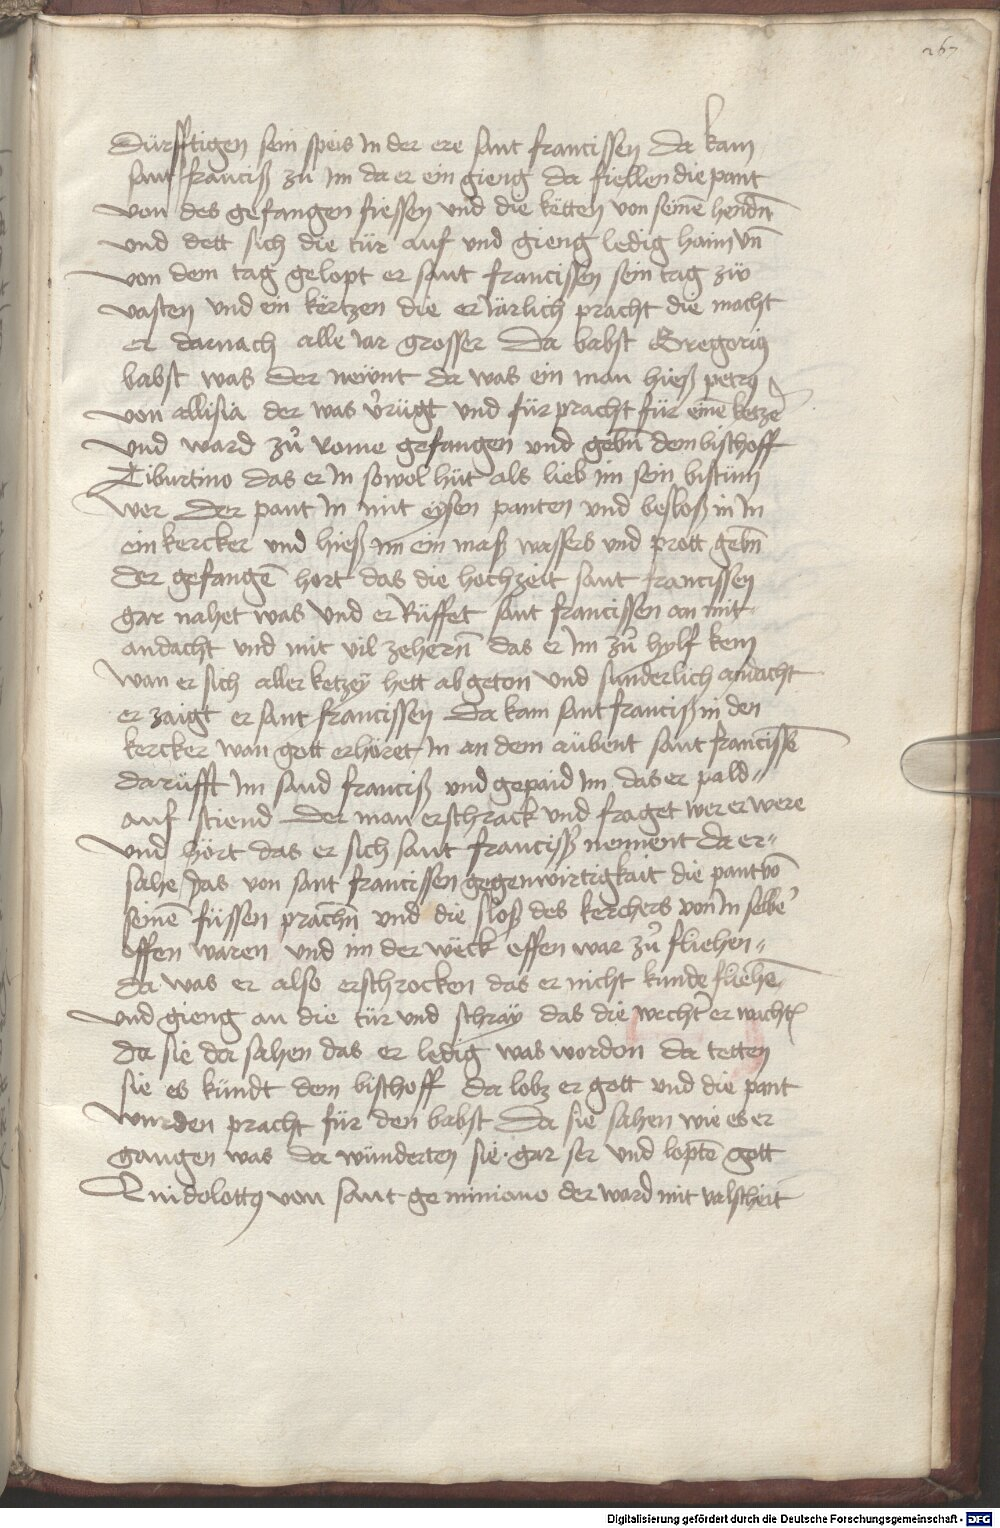 267
Dürfftigen sein speis in der ere sant francissen Da kam
sant franciß zů im da er ein gieng da fiellen die pant
von des gefangen fiessen und die ketten von seinē hendn̄
und dett sich die tür auf und gieng ledig haim vn̄
von dem tag gelopt er sant francissen sein tag zü
vasten und ein kertzen die er iärlich pracht die macht
er darnach alle iar grosser Da babst Gregoriꝰ
babst was der neünt da was ein man hieß petrꝰ
von allisia der was v̓rügt und für pracht für einē ketze̓
und ward zů rome gefangen und gebn̄ dem bischoff
Tiburtino das er in sowol hüt als lieb im sein bistüm
wer Der pant in mit eysen panten und besloß in in
ein kercker und hieß im ein maß wassers und prott gebn̄
der gefangē hort das die hochzeit sant francissen
gar nahet was und er Rüffet sant francissen an mit
andacht und mit vil zehern̄ das er im zů hylf kem
wan er sich aller ketzey hett ab geton und sunderlich andacht
er zaigt er sant francissen Da kam sant franciß in den
kercker wan gott erhöret in an dem aübent sant francissē
da rüfft im sand franciß und gepaid im das er pald-
auf stiend Der man erschrack und fraget wer er were
und hört das er sich sant franciß nennent da er-
sahe das von sant francissen gegenwirtigkait die pant vō
seinē füssen prachn̄ und die sloß des kerchers von in selbe̓
offen waren und im der weck offen war zů fliehen-
da was er also erschrocken das er nicht kunde fliehē
und gieng an die tür und schray das die wecht̓ er wacht̄
da sie da sahen das er ledig was worden da tetten
sie es kündt dem bischoff da lobz er gott und die pant
wurden pracht für den babst Da sie sahen wie es er
gangen was da wünderten sie gar ser und loptē gott
Quidolottꝰ von sant geminiano der ward mit valscheit
Digitalisierung gefördert durch die Deutsche Forschungsgemeinschaft - DFG